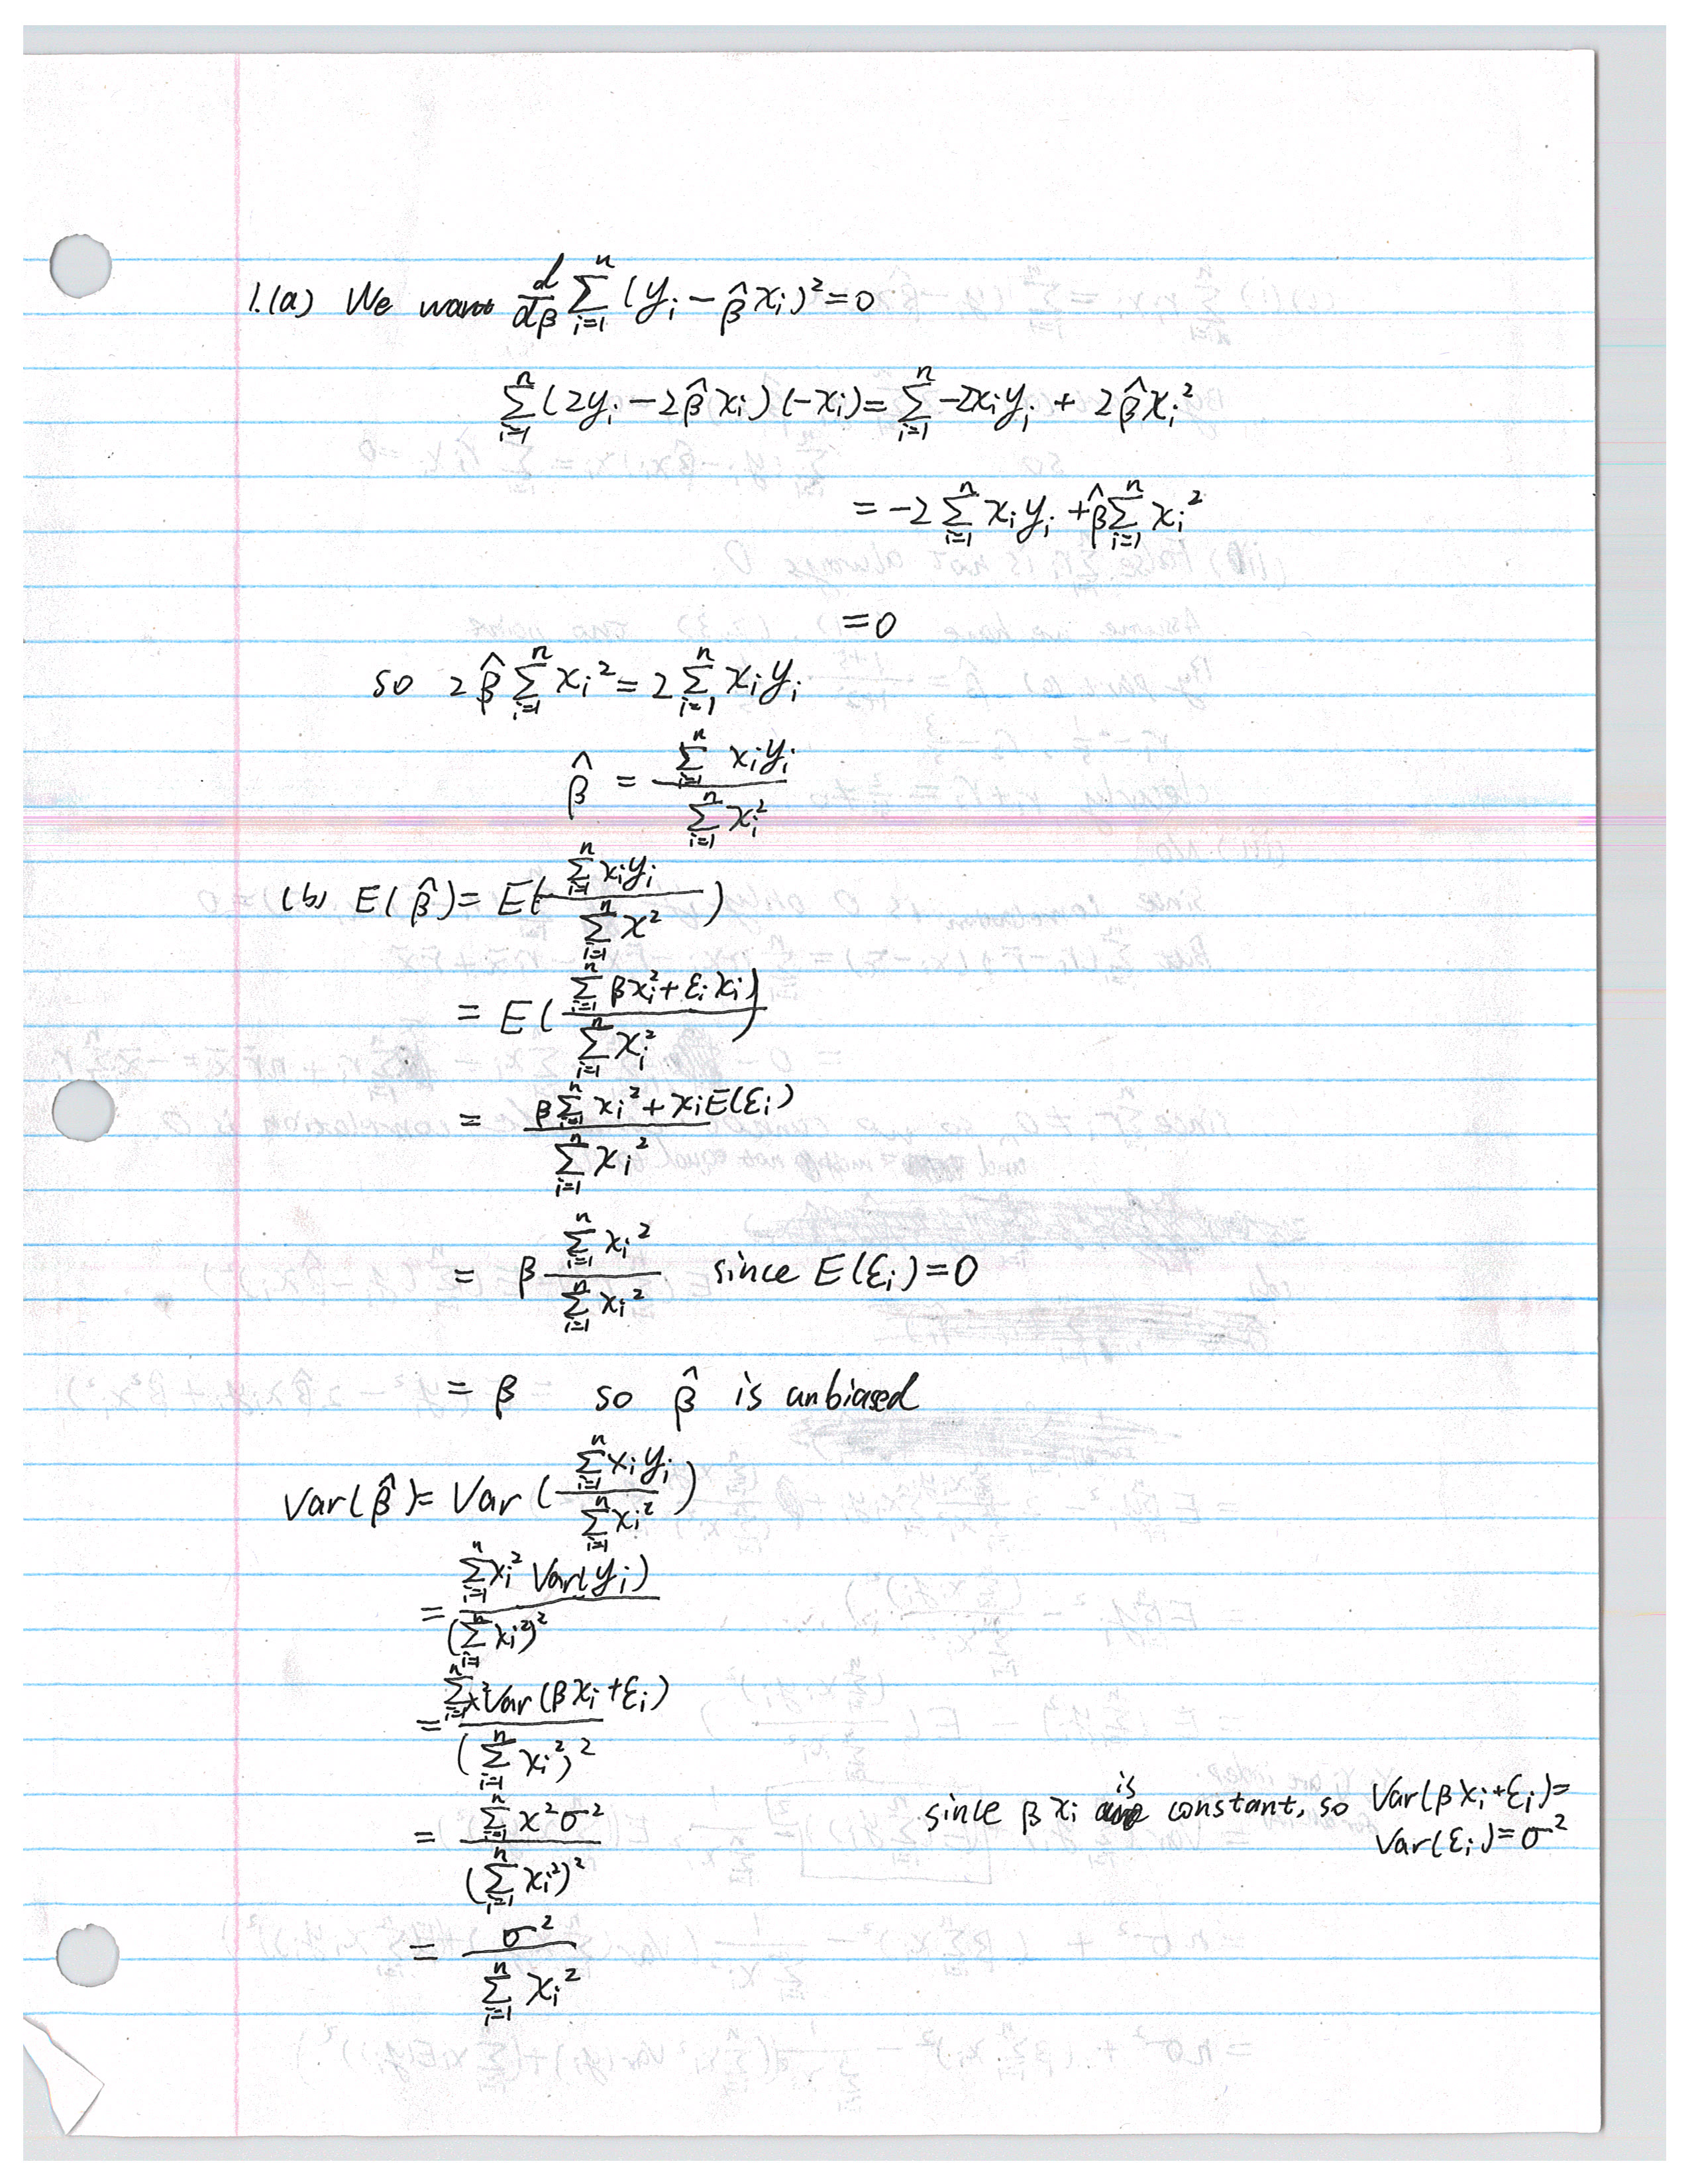 1.(a) We want d/dβ Σ_{i=1}^{n} (y_i - β̂x_i)² = 0
Σ_{i=1}^{n} (2y_i - 2β̂x_i)(-x_i) = Σ_{i=1}^{n} -2x_iy_i + 2β̂x_i²
= -2 Σ_{i=1}^{n} x_iy_i + β̂ Σ_{i=1}^{n} x_i²
= 0
so 2β̂ Σ_{i=1}^{n} x_i² = 2 Σ_{i=1}^{n} x_iy_i
β̂ = (Σ_{i=1}^{n} x_iy_i) / (Σ_{i=1}^{n} x_i²)
(b) E(β̂) = E((Σ_{i=1}^{n} x_iy_i) / (Σ_{i=1}^{n} x²))
= E((Σ_{i=1}^{n} βx_i² + ε_ix_i) / (Σ_{i=1}^{n} x_i²))
= (β Σ_{i=1}^{n} x_i² + x_iE(ε_i)) / (Σ_{i=1}^{n} x_i²)
= β (Σ_{i=1}^{n} x_i²) / (Σ_{i=1}^{n} x_i²) since E(ε_i) = 0
= β so β̂ is unbiased
Var(β̂) = Var((Σ_{i=1}^{n} x_iy_i) / (Σ_{i=1}^{n} x_i²))
= (Σ_{i=1}^{n} x_i² Var(y_i)) / (Σ_{i=1}^{n} x_i²)²
= (Σ_{i=1}^{n} x² Var(βx_i + ε_i)) / (Σ_{i=1}^{n} x_i²)²
= (Σ_{i=1}^{n} x²σ²) / (Σ_{i=1}^{n} x_i²)² since βx_i is constant, so Var(βx_i + ε_i) =
Var(ε_i) = σ²
= σ² / (Σ_{i=1}^{n} x_i²)